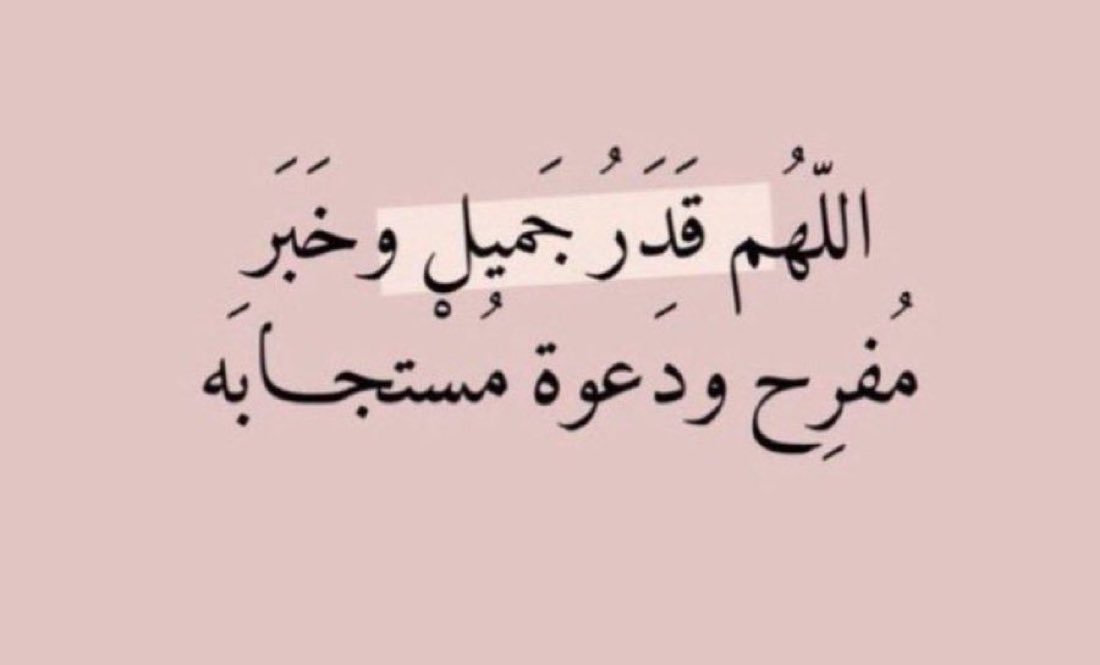 اللّهُم قَدَرُ جَميل وخَبَر
مُفرِح ودَعوة مُسْتجـابَه